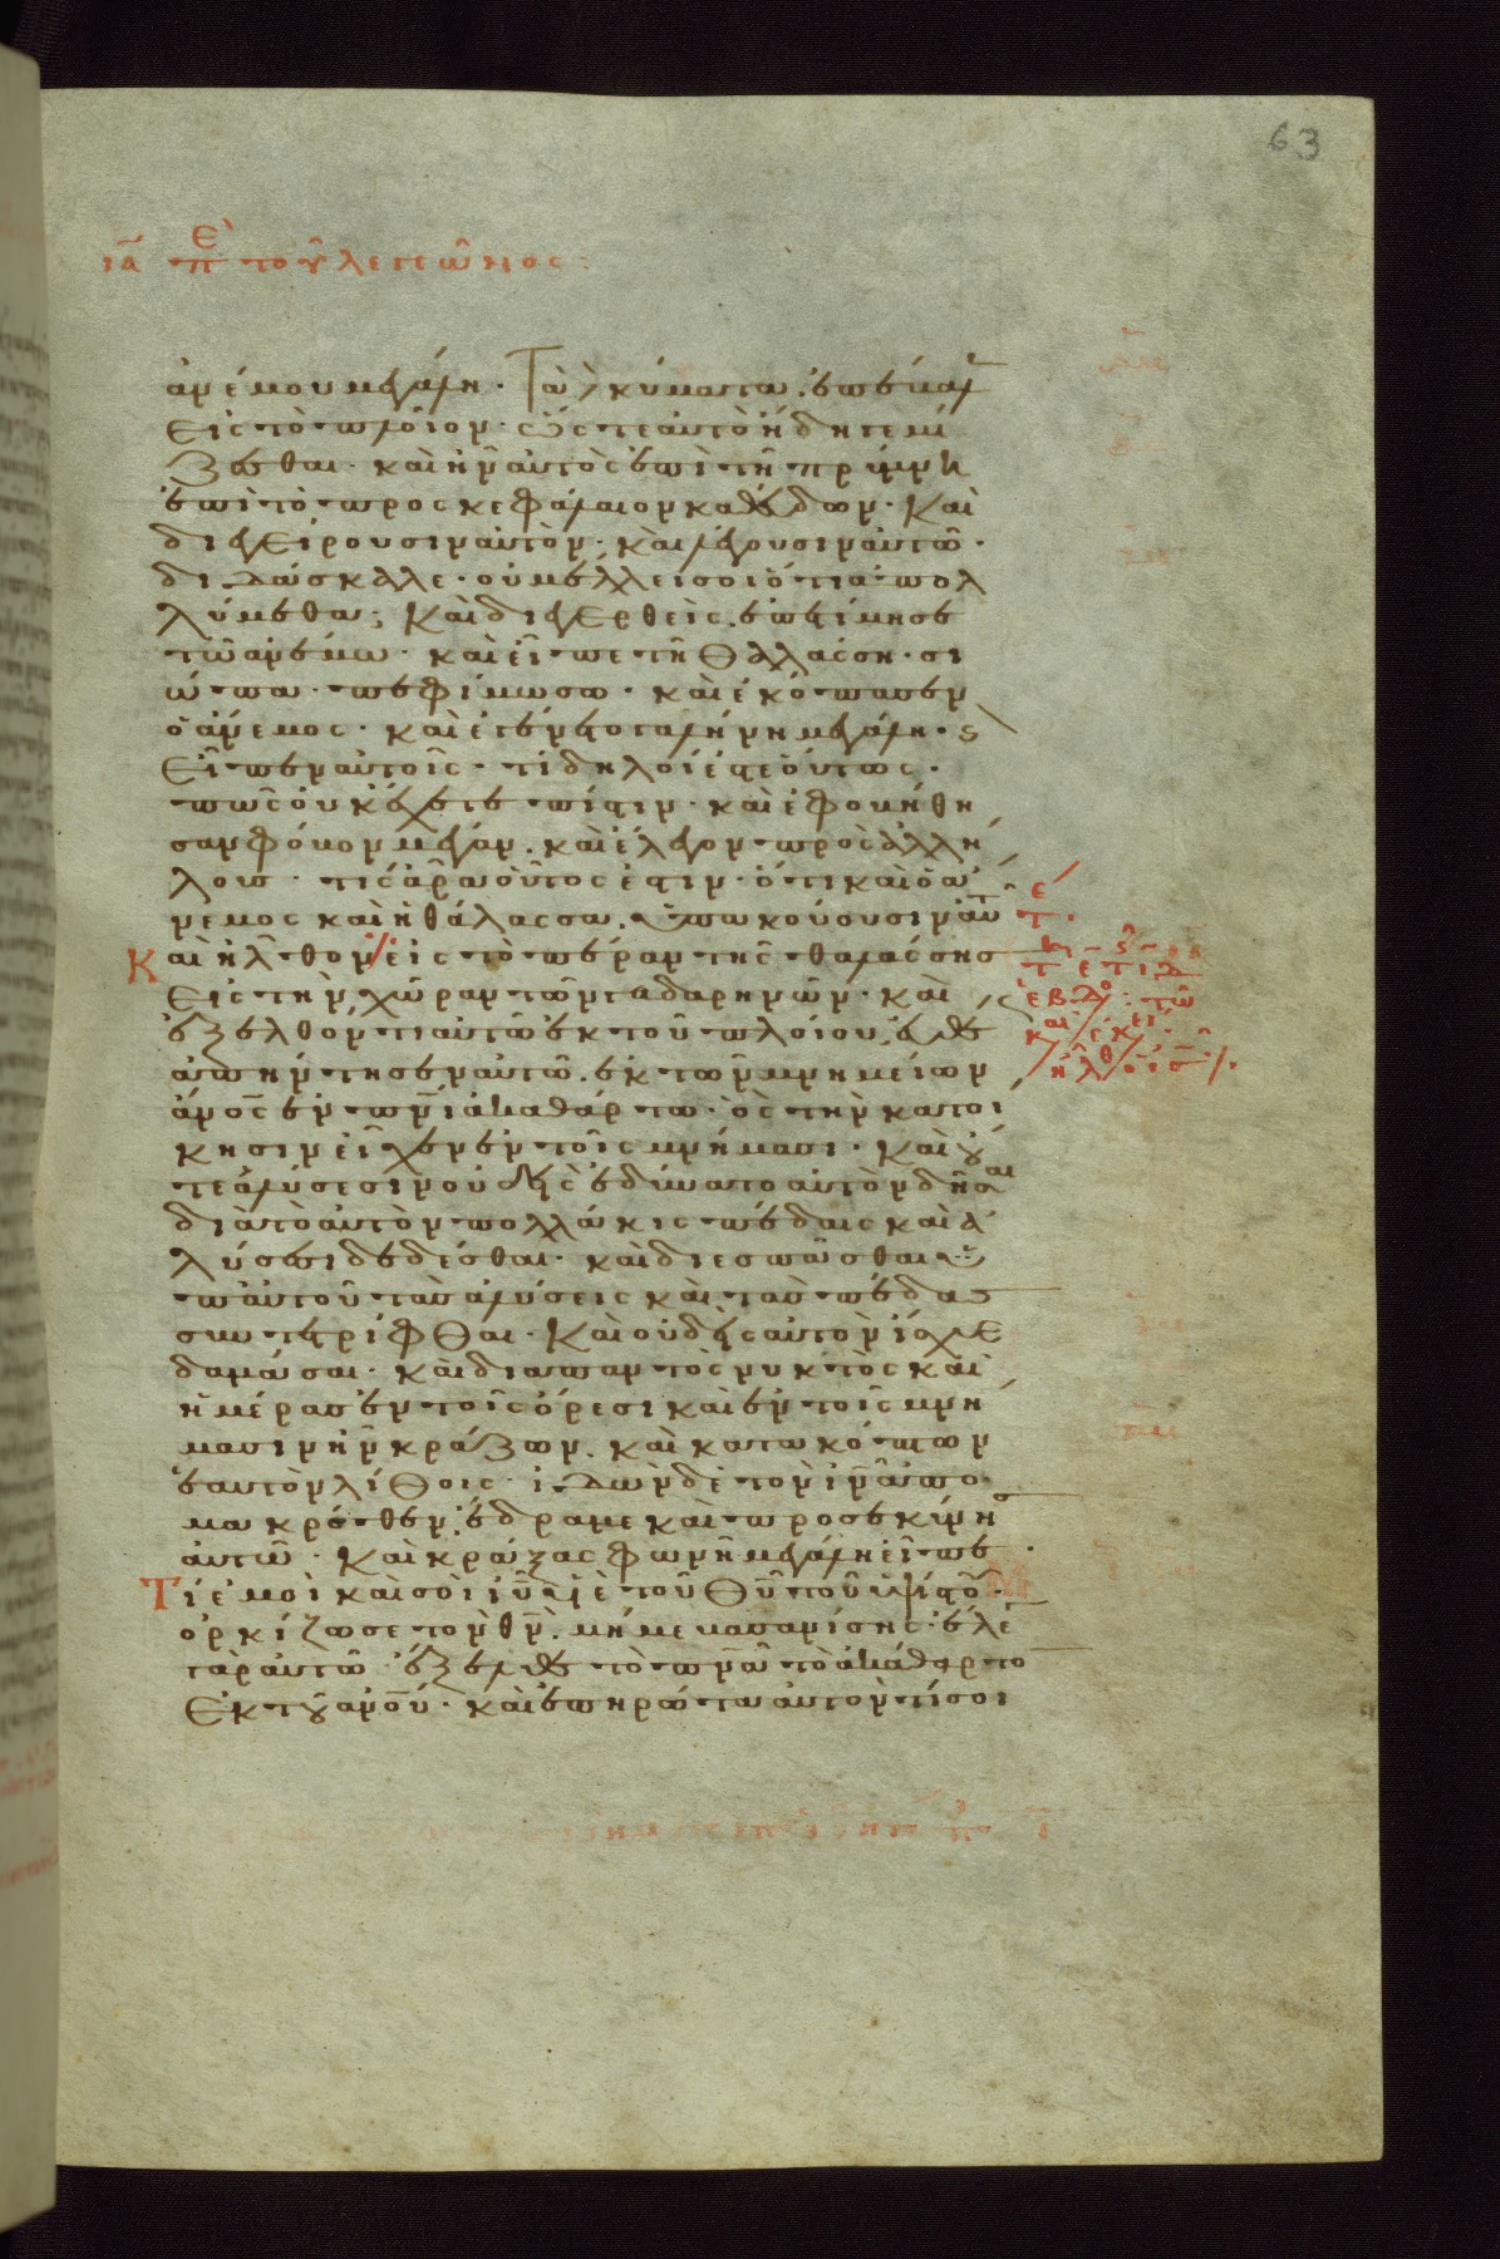 63
ια πε του λεγεῶνος:
ἀνέμου μεγάλη. Τὰ δὲ κύματα ἐπέβαλ
εἰς τὸ πλοῖον. ὥστε αὐτὸ ἤδη γεμί
ζεσθαι. καὶ ἦν αὐτὸς ἐπὶ τῆ πρύμνη
ἐπὶ τὸ προσκεφάλαιον καθεύδων. Καὶ
διεγείρουσιν αὐτὸν. καὶ λέγουσιν αὐτῶ.
διδάσκαλε. οὐ μέλλει σοι ὅτι ἀπολ
λύμεθα; Καὶ διεγερθεὶς ἐπετίμησε
τῶ ἀνέμω. καὶ εἶπε τῆ θαλάσση. σι
ώπα. πεφίμωσο. καὶ ἐκόπασεν
ὁ ἄνεμος. καὶ ἐγένετο γαλήνη μεγάλη. ϛ
εἶπεν αὐτοῖς. τί δηλοί ἐστε οὕτως.
πῶς οὐκ ἔχετε πίστιν. καὶ ἐφοβήθη
σαν φόβον μέγαν. καὶ ἔλεγον πρὸς ἀλλή
λους. τίς ἄρα οὗτος ἐστιν. ὅτι καὶ ὁ ἄ
νεμος καὶ ἡ θάλασσα ὑπακούουσιν αὐτῶ
Καὶ ἦλθον εἰς τὸ πέραν τῆς θαλάσσης
εἰς τὴν χώραν τῶν γαδαρηνῶν. καὶ
ἐξελθόντι αὐτῶ ἐκ τοῦ πλοίου, εὐθὺς
ἀπήντησεν αὐτῶ ἐκ τῶν μνημείων
ἄνος ἐν πνι ἀκαθάρτω. ὃς τὴν κατοί
κησιν εἶχεν ἐν τοῖς μνήμασι. Καὶ οὔ
τε ἁλύσεσιν οὐδεὶς ἐδύνατο αὐτὸν δῆσαι
διὰ τὸ αὐτὸν πολλάκις πέδαις καὶ ἁ
λύσεσι δεδέσθαι. καὶ διεσπᾶσθαι ὑ
π' αὐτοῦ τὰς ἁλύσεις καὶ τὰς πέδας
συντετρίφθαι. Καὶ οὐδεὶς αὐτὸν ἴσχυε
δαμάσαι. καὶ διαπαντὸς νυκτὸς καὶ
ἡμέρας ἐν τοῖς ὄρεσι καὶ ἐν τοῖς μνή
μασιν ἦν κράζων. καὶ κατακόπτων
ἑαυτὸν λίθοις. ἰδὼν δὲ τὸν ιν ἀπὸ
μακρόθεν, ἔδραμε καὶ προσεκύνησ
αὐτῶ. Καὶ κράξας φωνῆ μεγάλη εἶπε.
Τί ἐμοὶ καὶ σοὶ ιυ υἱὲ τοῦ θυ τοῦ ὑψίστου.
ὁρκίζω σε τὸν θν. μή με βασανίσης. ἔλεγε
γὰρ αὐτῶ. ἔξελθε τὸ πνα τὸ ἀκάθαρτον
ἐκ τοῦ ἀνου. καὶ ἐπηρώτα αὐτὸν τί σοι